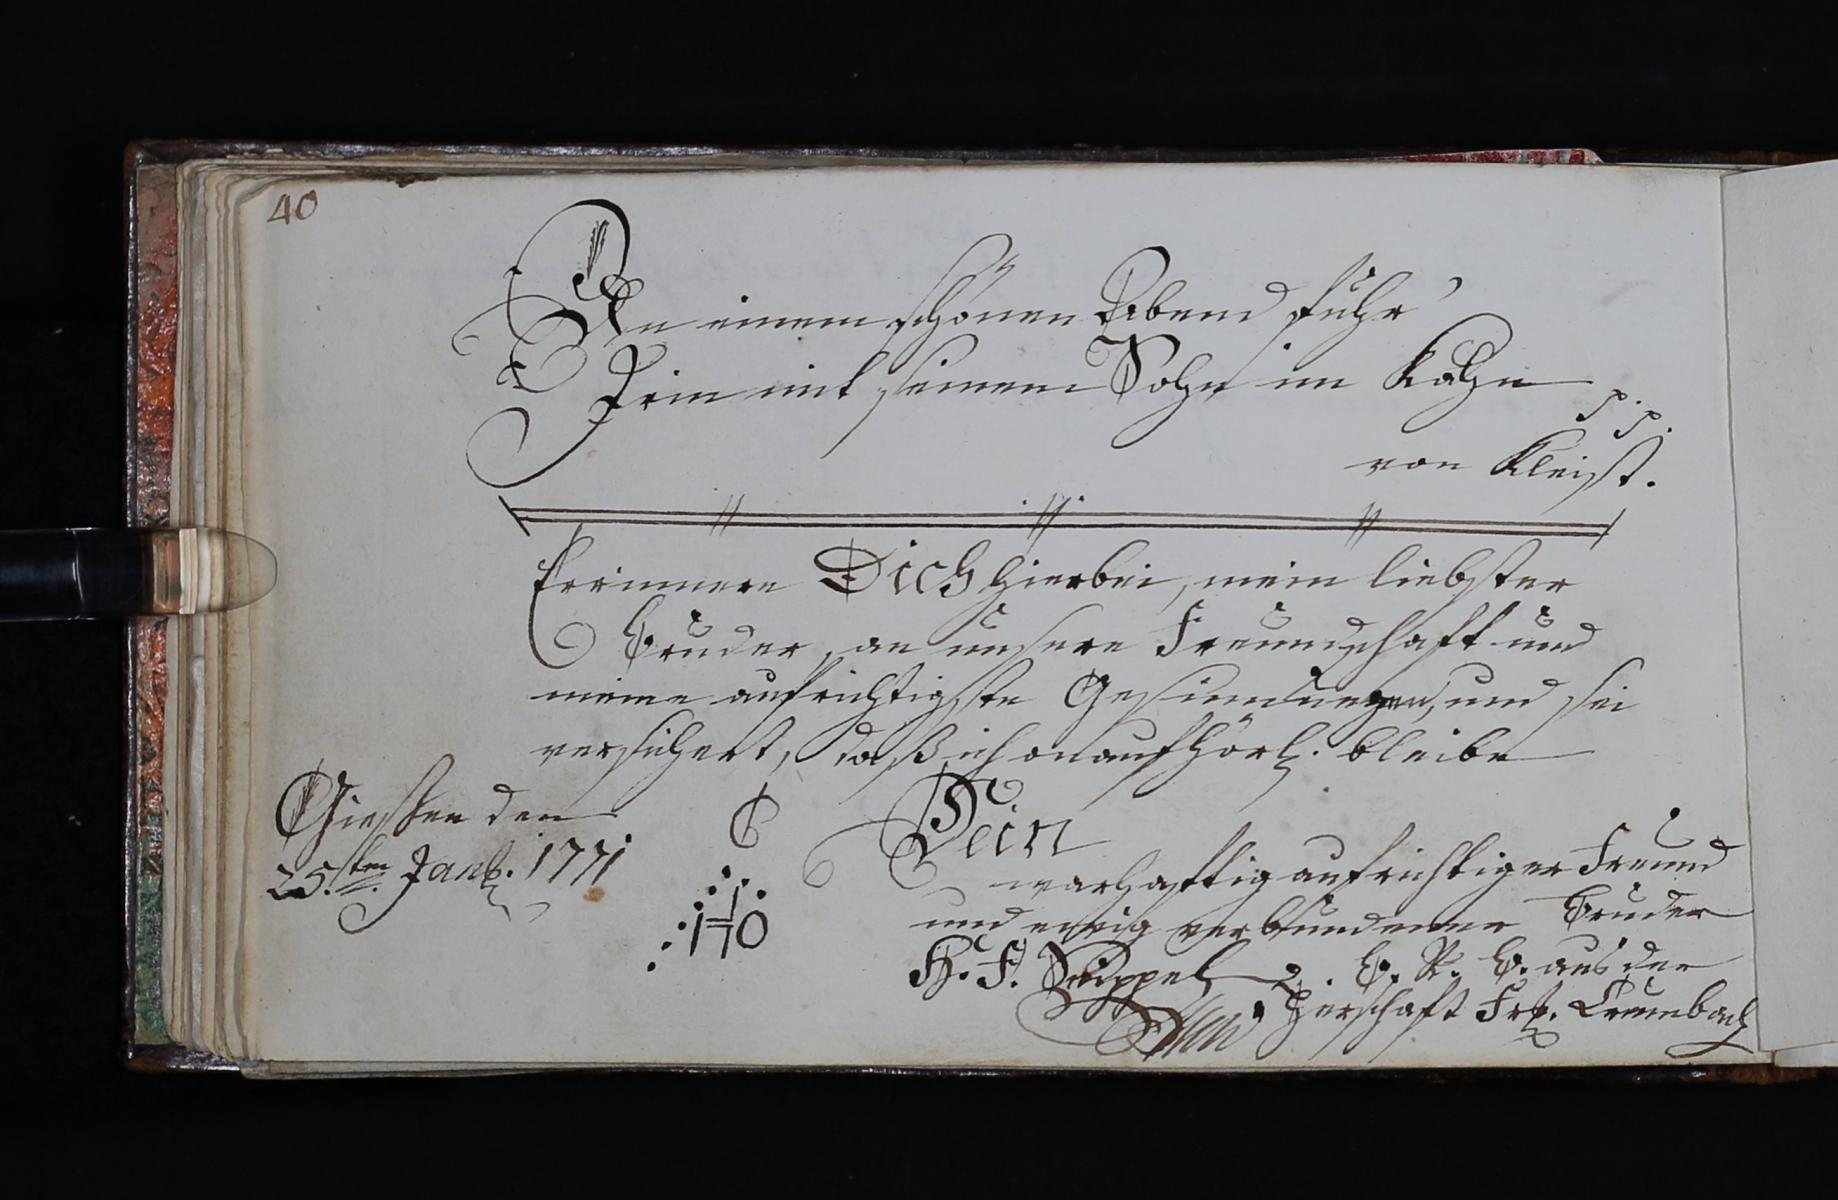 40
An einem schönen Abend fuhr
Irin mit seinem Sohn im Kahn p. p.
von Kleist.
Errinnere Dich hierbei, mein liebster
Bruder, an unsere Freundschaft und
meine aufrichtigste Gesinnungen, und sei
versichert, daß ich onaufhörl. bleibe
Giessen den
25.sten Janr. 1771
Dein
warhafftig aufrichtiger Freund
und ewig verbundener Bruder
H. F. d. B. R. B. aus der
Herschaft Frk. Crumbach